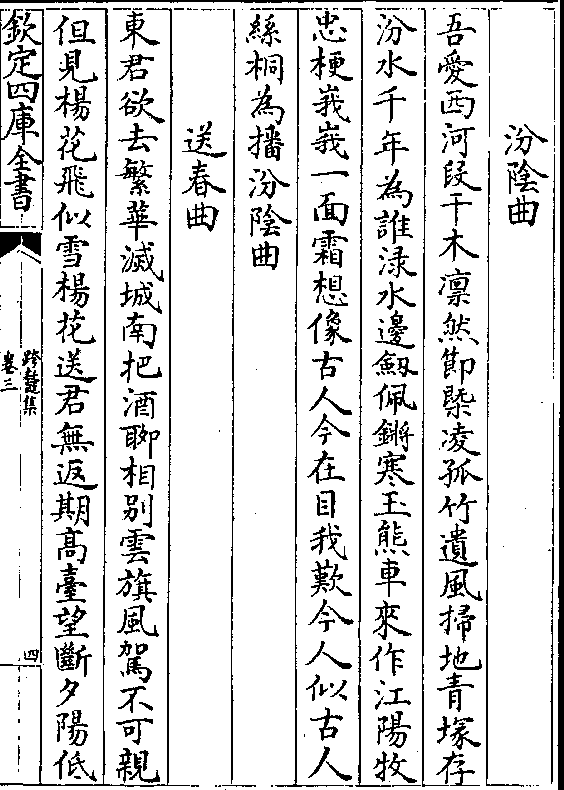 汾陰曲
吾愛西河段干木凛然節槩凌孤竹遺風掃地青塚存
汾水千年為誰渌水邊劔佩鏘寒玉熊車來作江陽牧
忠梗峩峩一面霜想像古人今在目我歎今人似古人
絲桐為播汾陰曲
送春曲
東君欲去繁華滅城南把酒聊相别雲旗風駕不可親
但見楊花飛似雪楊花送君無返期高臺望斷夕陽低
欽定四庫全書
跨鼇集
卷三
四